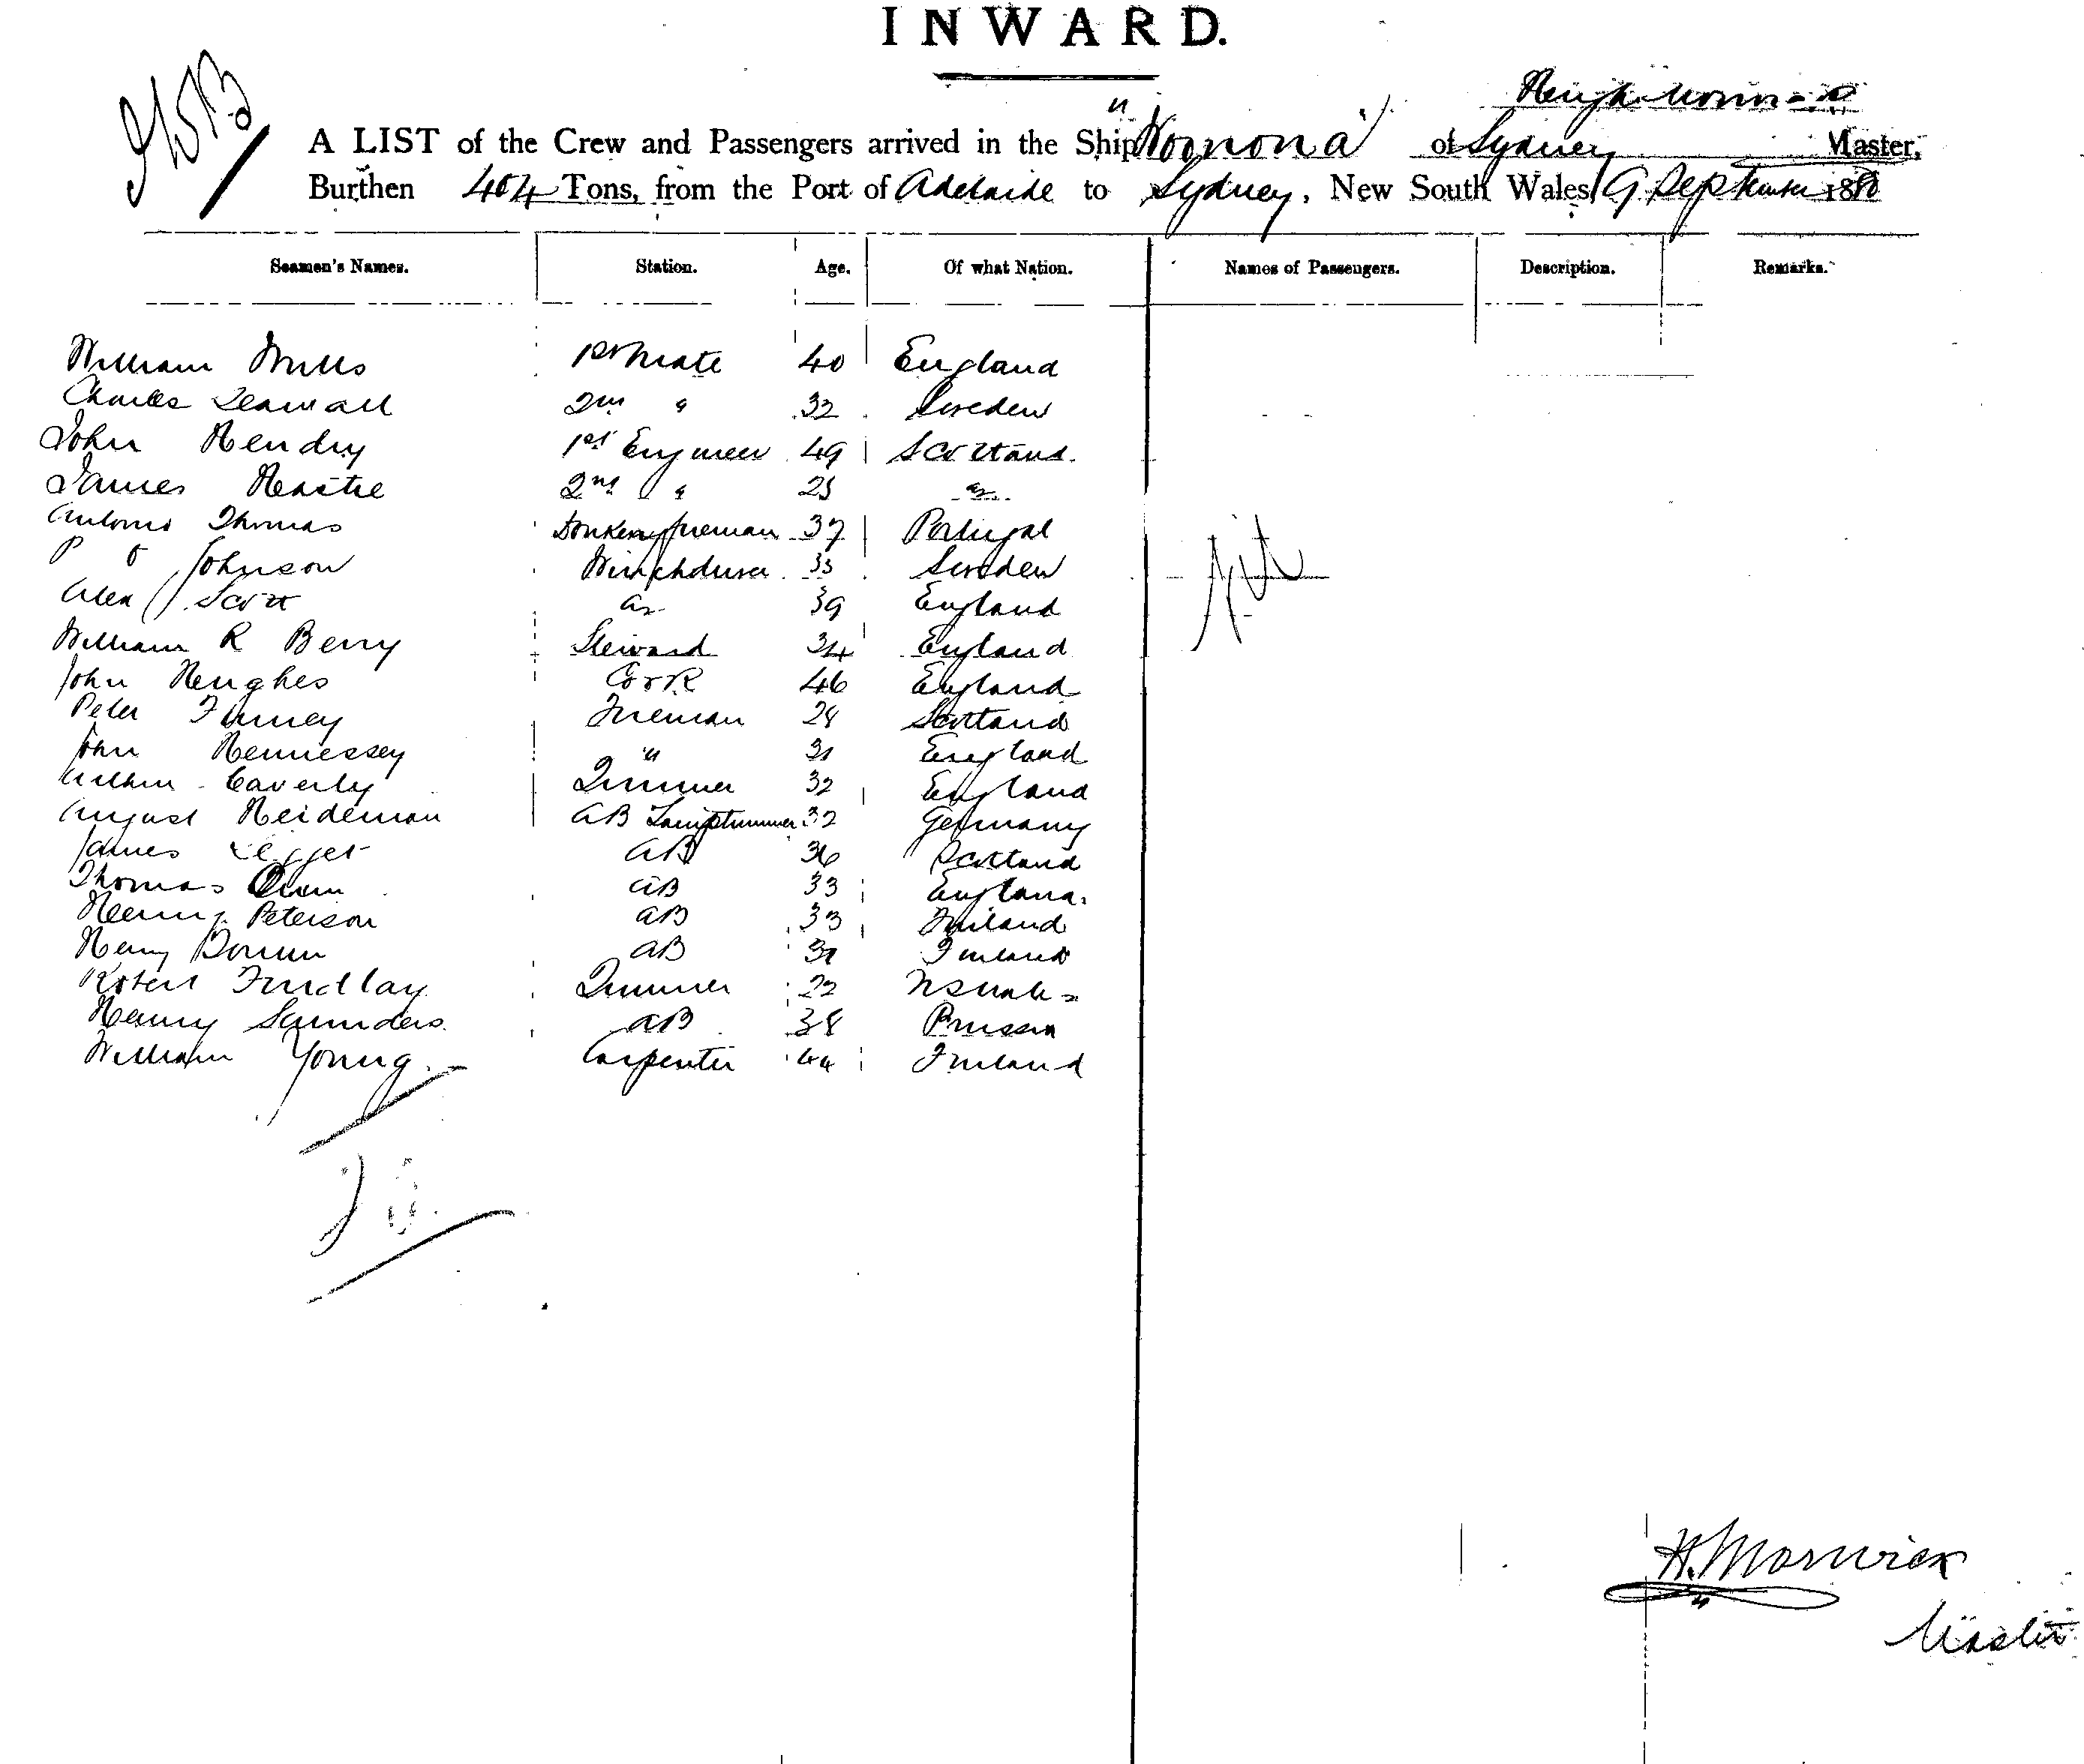 INWARD.
A LIST of the Crew and Passengers arrived in the Ship "Woonona" of Sydney Master,
Burthen 404 Tons, from the Port of Adelaide to Sydney, New South Wales, 9 September 188
Seamen's Names. Station. Age. Of what Nation. Names of Passengers. Description. Remarks.
William Mills 1st Mate 40 England
Charles 2nd " 32 Sweden
John Hendry 1st Engineer 49 Scotland
James 2nd " 25
Antonio Thomas Donkeyfireman 37 Portugal
P Johnson Winchdriver 33 Sweden
Alex Scott 39 England
William R Berry Steward 34 England
John Hughes Cook 46 England
Peter Fireman 28 Scotland
John Hennessey " 31 England
Caverly Trimmer 32 England
August Heideman AB Lamptrimmer 32 Germany
James AB 36 Scotland
Thomas AB 33 England
Henry Peterson AB 33 Finland
Henry AB Finland
Robert Findlay Trimmer 22 NSWales
Henry Saunders AB 38 Prussia
William Young Carpenter 44 Finland
H. Morwick
Master